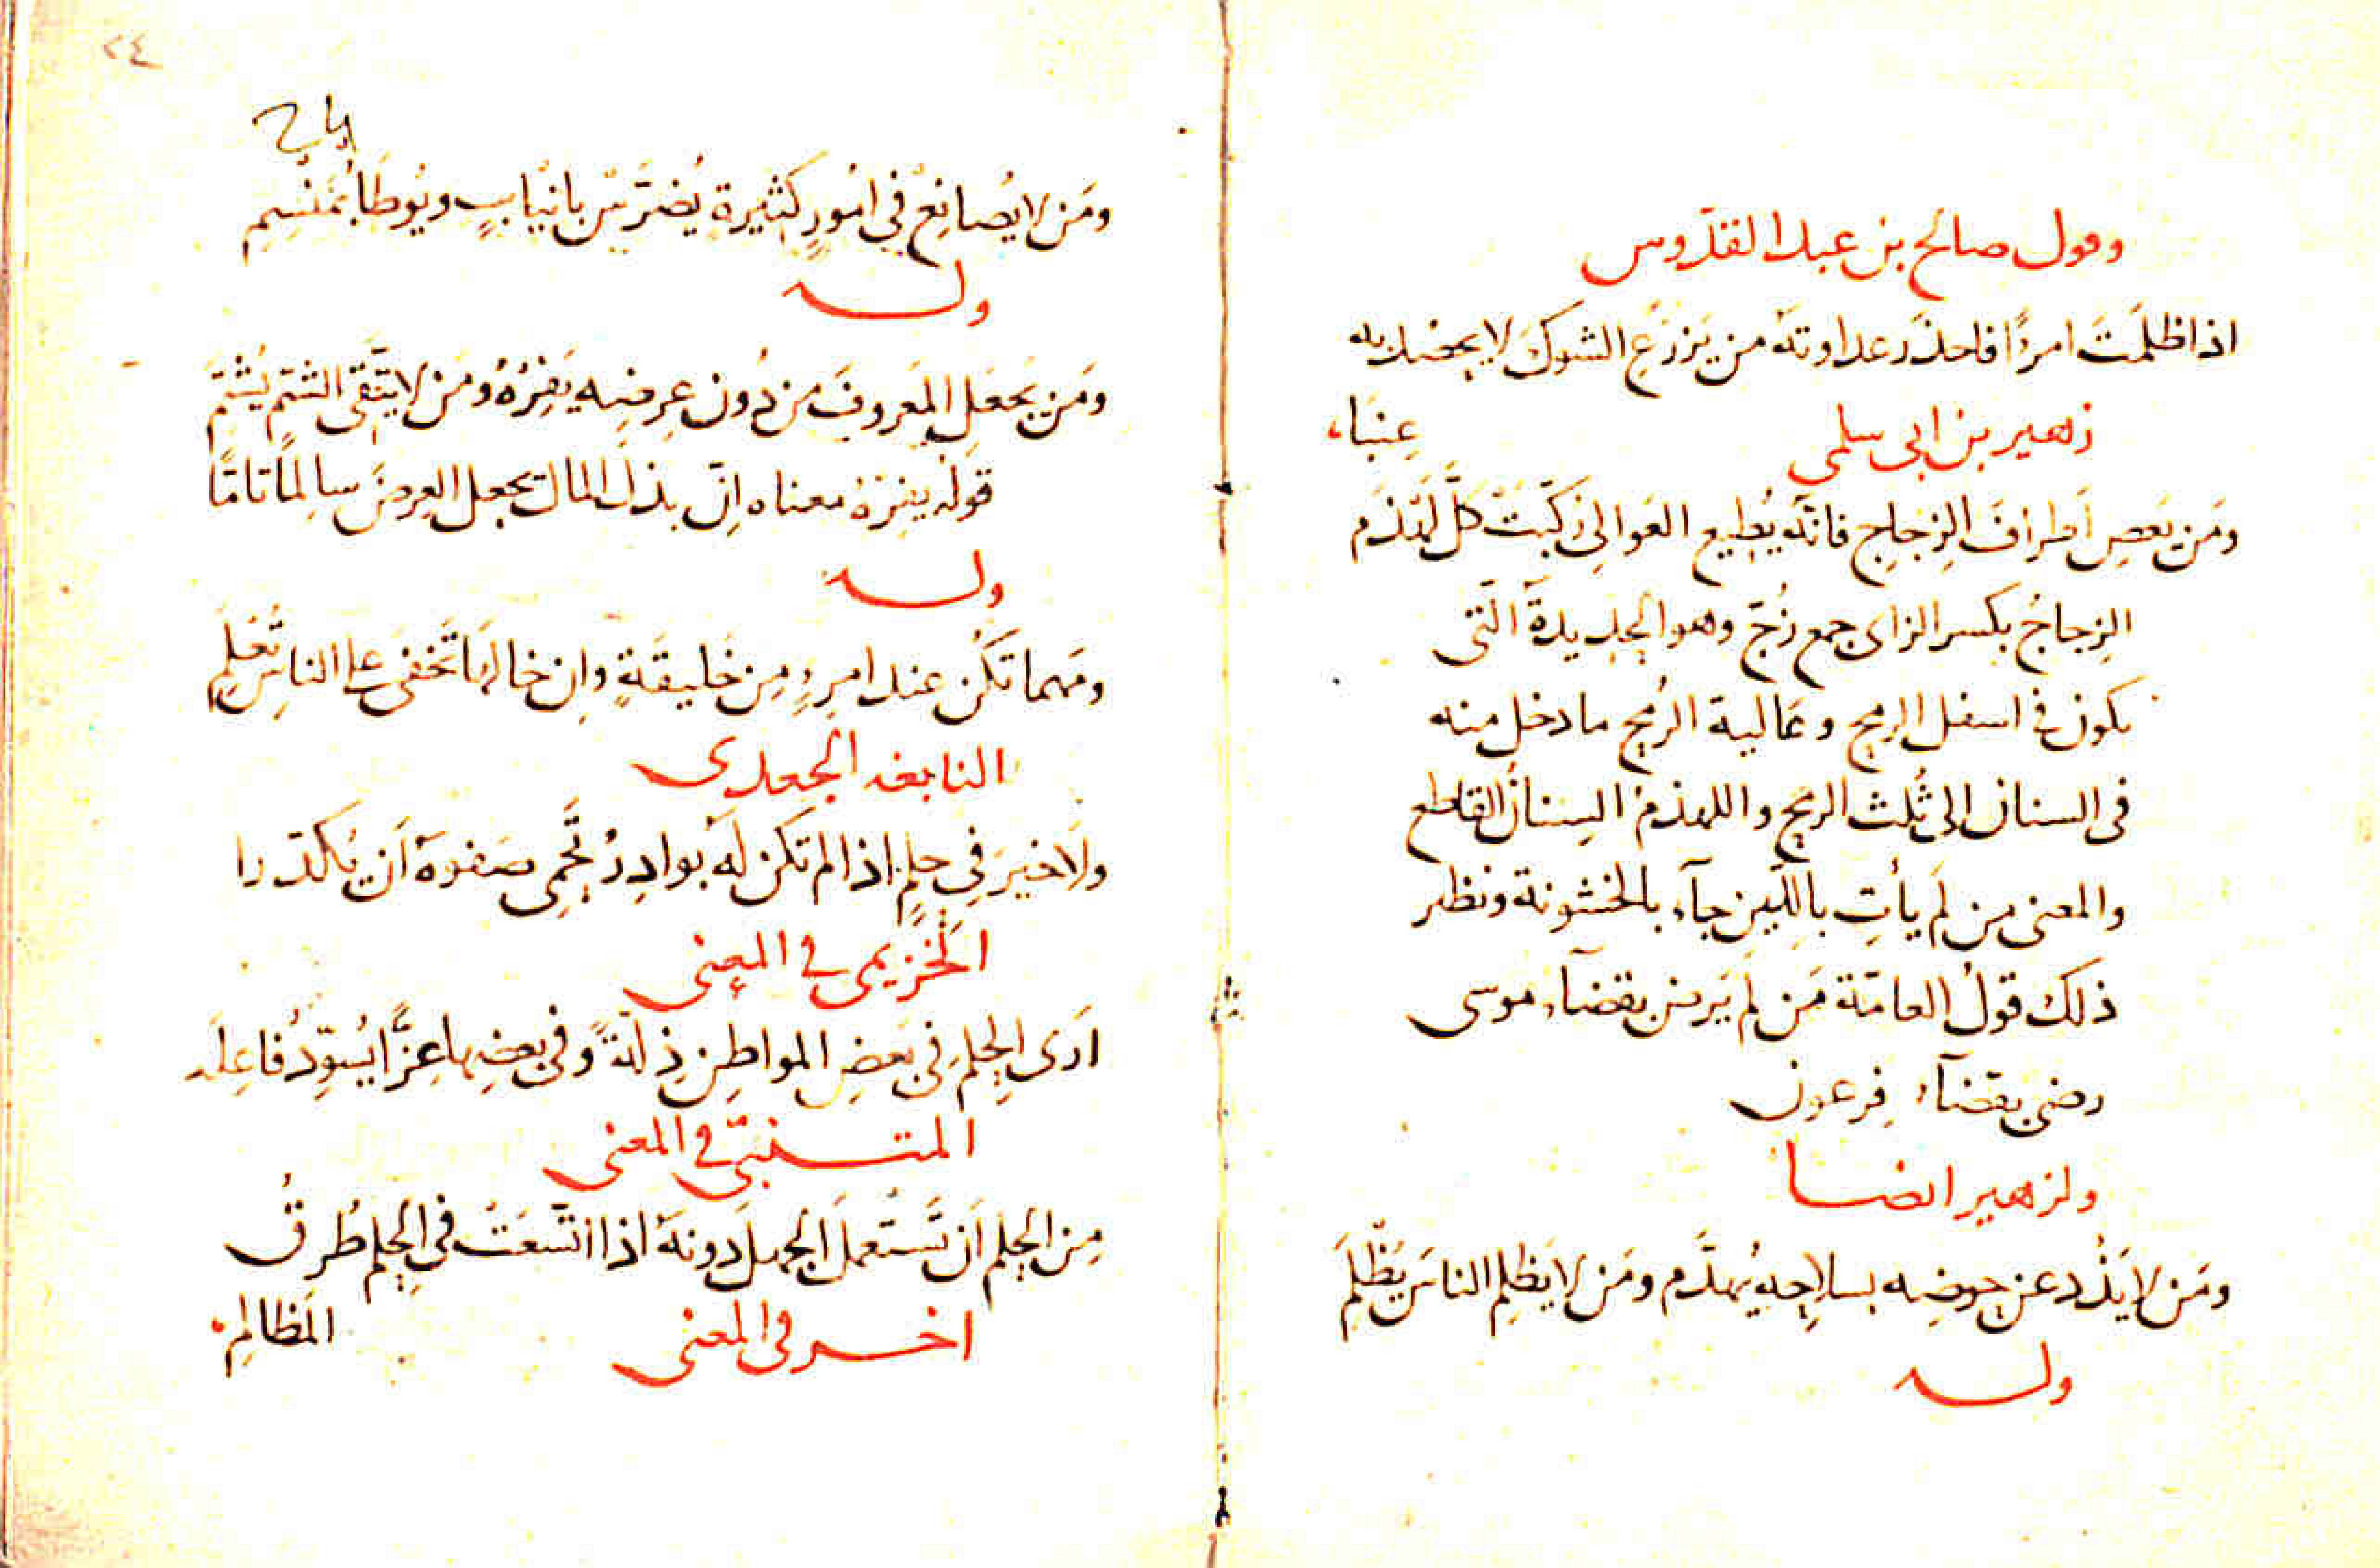 وقول صالح بن عبد القدّوس
اذا ظلمتَ امرءًا فاحذر عداوتَه من يَزرَعِ الشوكَ لا يحصد به
عِنبَا
زهير بن ابى سلمى
ومَن يَعصِ اَطرافَ الزِجاجِ فانّه يُطيع العَوالى رُكّبَتْ كلَّ لَهذَم
الزِجاجُ بكسر الزاى جمع زُجّ وهو الحديدةَ الّتى
يكون فى اسفل الرمح وعَالية الرُمح ما دخل منه
فى السنان الى ثُلث الرمح واللهذمُ السِنانُ القاطع
والمعنى من لَم يأتِ باللّين جآء بالخشونة ونظير
ذلك قولُ العامّة مَن لَم يَرضَ بقضآء موسى
رضى بقضآء فِرعون
ولزهير ايضا
ومَن لا يَذُد عن حوضِه بسلاحِهِ يُهدَّم ومَن لا يَظلِمِ الناسَ يُظلَمِ
وله
٢٤
ومَن لا يُصانِعْ فى اُمُورٍ كثيرة يُضرَّس بانيابٍ ويُوطَأ بمَنْسِمِ
وله
ومَن يَجعَلِ المَعروفَ من دُون عِرضِه يَفِرْهُ ومَن لا يتَّقى الشتمَ يُشتمِ
قولُه يفِرْهُ معناه اِنّ بذل المال يجعل العِرضَ سالِمًا تامًّا
وله
ومَهما تكُن عند امرءٍ مِن خَليقَةٍ وان خالَها تَخفى على الناسِ تُعْلَمِ
النابغه الجعدى
ولاَ خيرَ فى حلِمٍ اذا لم تكن لَه بَوادِرُ تَحمِى صَفوَهُ اَن يُكدّرا
الخُزَيمى فى المعنى
اَرَى الحِلمَ فى بَعضِ المواطِنِ ذِلّةً وفى بعضِها عِزًّا يُسَوِّدُ فاعِلَه
المتنبّى فى المعنى
مِن الحِلم اَن تَستَعمل الجهلَ دونهَ اذا اتّسَعَتْ فى الحِلم طُرقُ
المَظالمِ
اخر فى المعنى